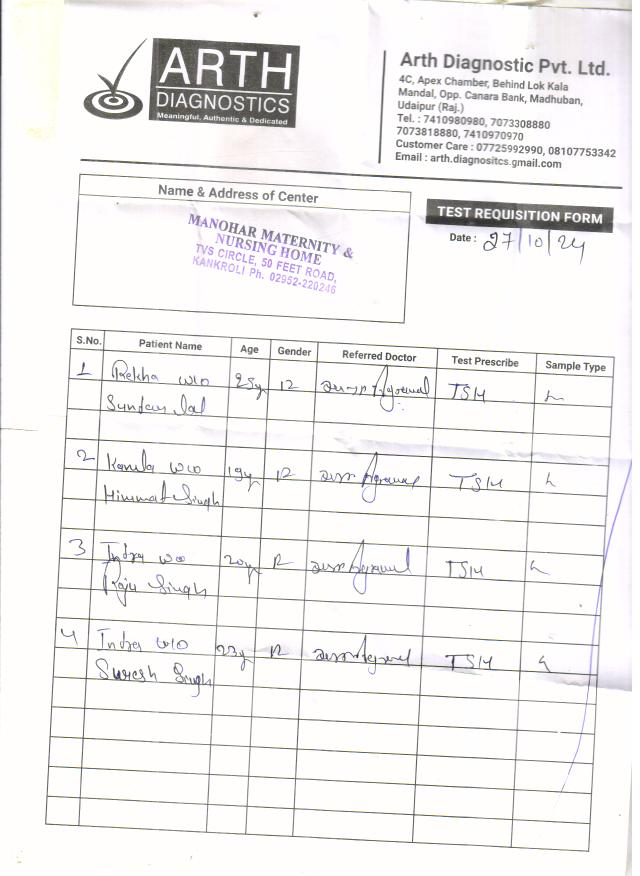 ARTH
DIAGNOSTICS
Meaningful, Authentic & Dedicated
Arth Diagnostic Pvt. Ltd.
4C, Apex Chamber, Behind Lok Kala
Mandal, Opp. Canara Bank, Madhuban,
Udaipur (Raj.)
Tel. : 7410980980, 7073308880
7073818880, 7410970970
Customer Care : 07725992990, 08107753342
Email : arth.diagnositcs.gmail.com
Name & Address of Center
MANOHAR MATERNITY &
NURSING HOME
TVS CIRCLE, 50 FEET ROAD,
KANKROLI Ph. 02952-220246
TEST REQUISITION FORM
Date : 27/10/24
S.No. Patient Name Age Gender Referred Doctor Test Prescribe Sample Type
1 Rekha w/o 25y Agrawal TSH
Sundar lal
2 Kamla w/o 19y Agrawal TSH
Himmat Singh
3 Indra w/o 20y Agrawal TSH
Raju Singh
4 Indra w/o 23y Agrawal TSH
Suresh Singh